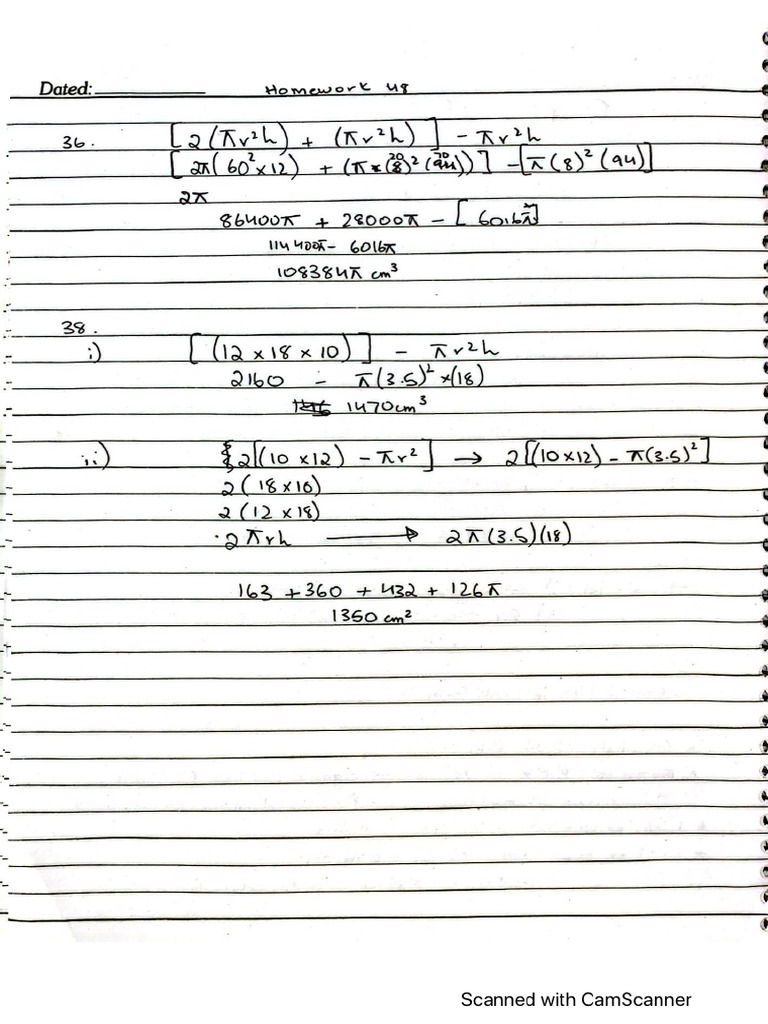 Dated: Homework 48
36. [2(πr²h) + (πr²h)] - πr²h
[2π(60² x 12) + (π x (20)² (70))] - [π(8)² (94)]
2π
86400π + 28000π - [6016π]
114400π - 6016π
108384π cm³
38.
i) [(12 x 18 x 10)] - πr²h
2160 - π(3.5)² x (18)
1470cm³
ii) {2[(10 x 12) - πr²] → 2[(10 x 12) - π(3.5)²]
2(18 x 10)
2(12 x 18)
·2πrh → 2π(3.5)(18)
163 + 360 + 432 + 126π
1350 cm²
Scanned with CamScanner